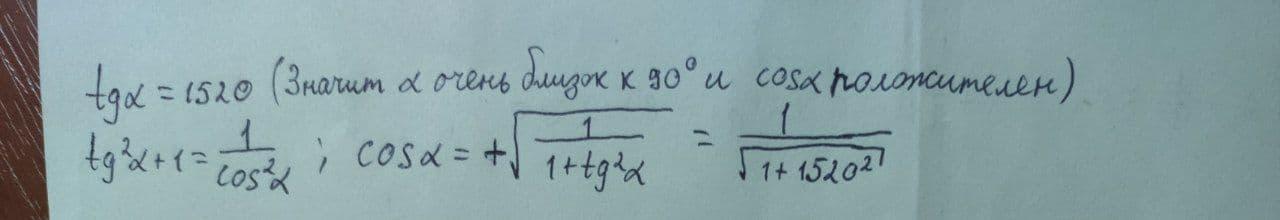 tgα = 1520 (Значит α очень близок к 90° и cosα положителен)
tg²α + 1 = 1/cos²α ; cosα = +√(1/(1 + tg²α)) = 1/√(1 + 1520²)